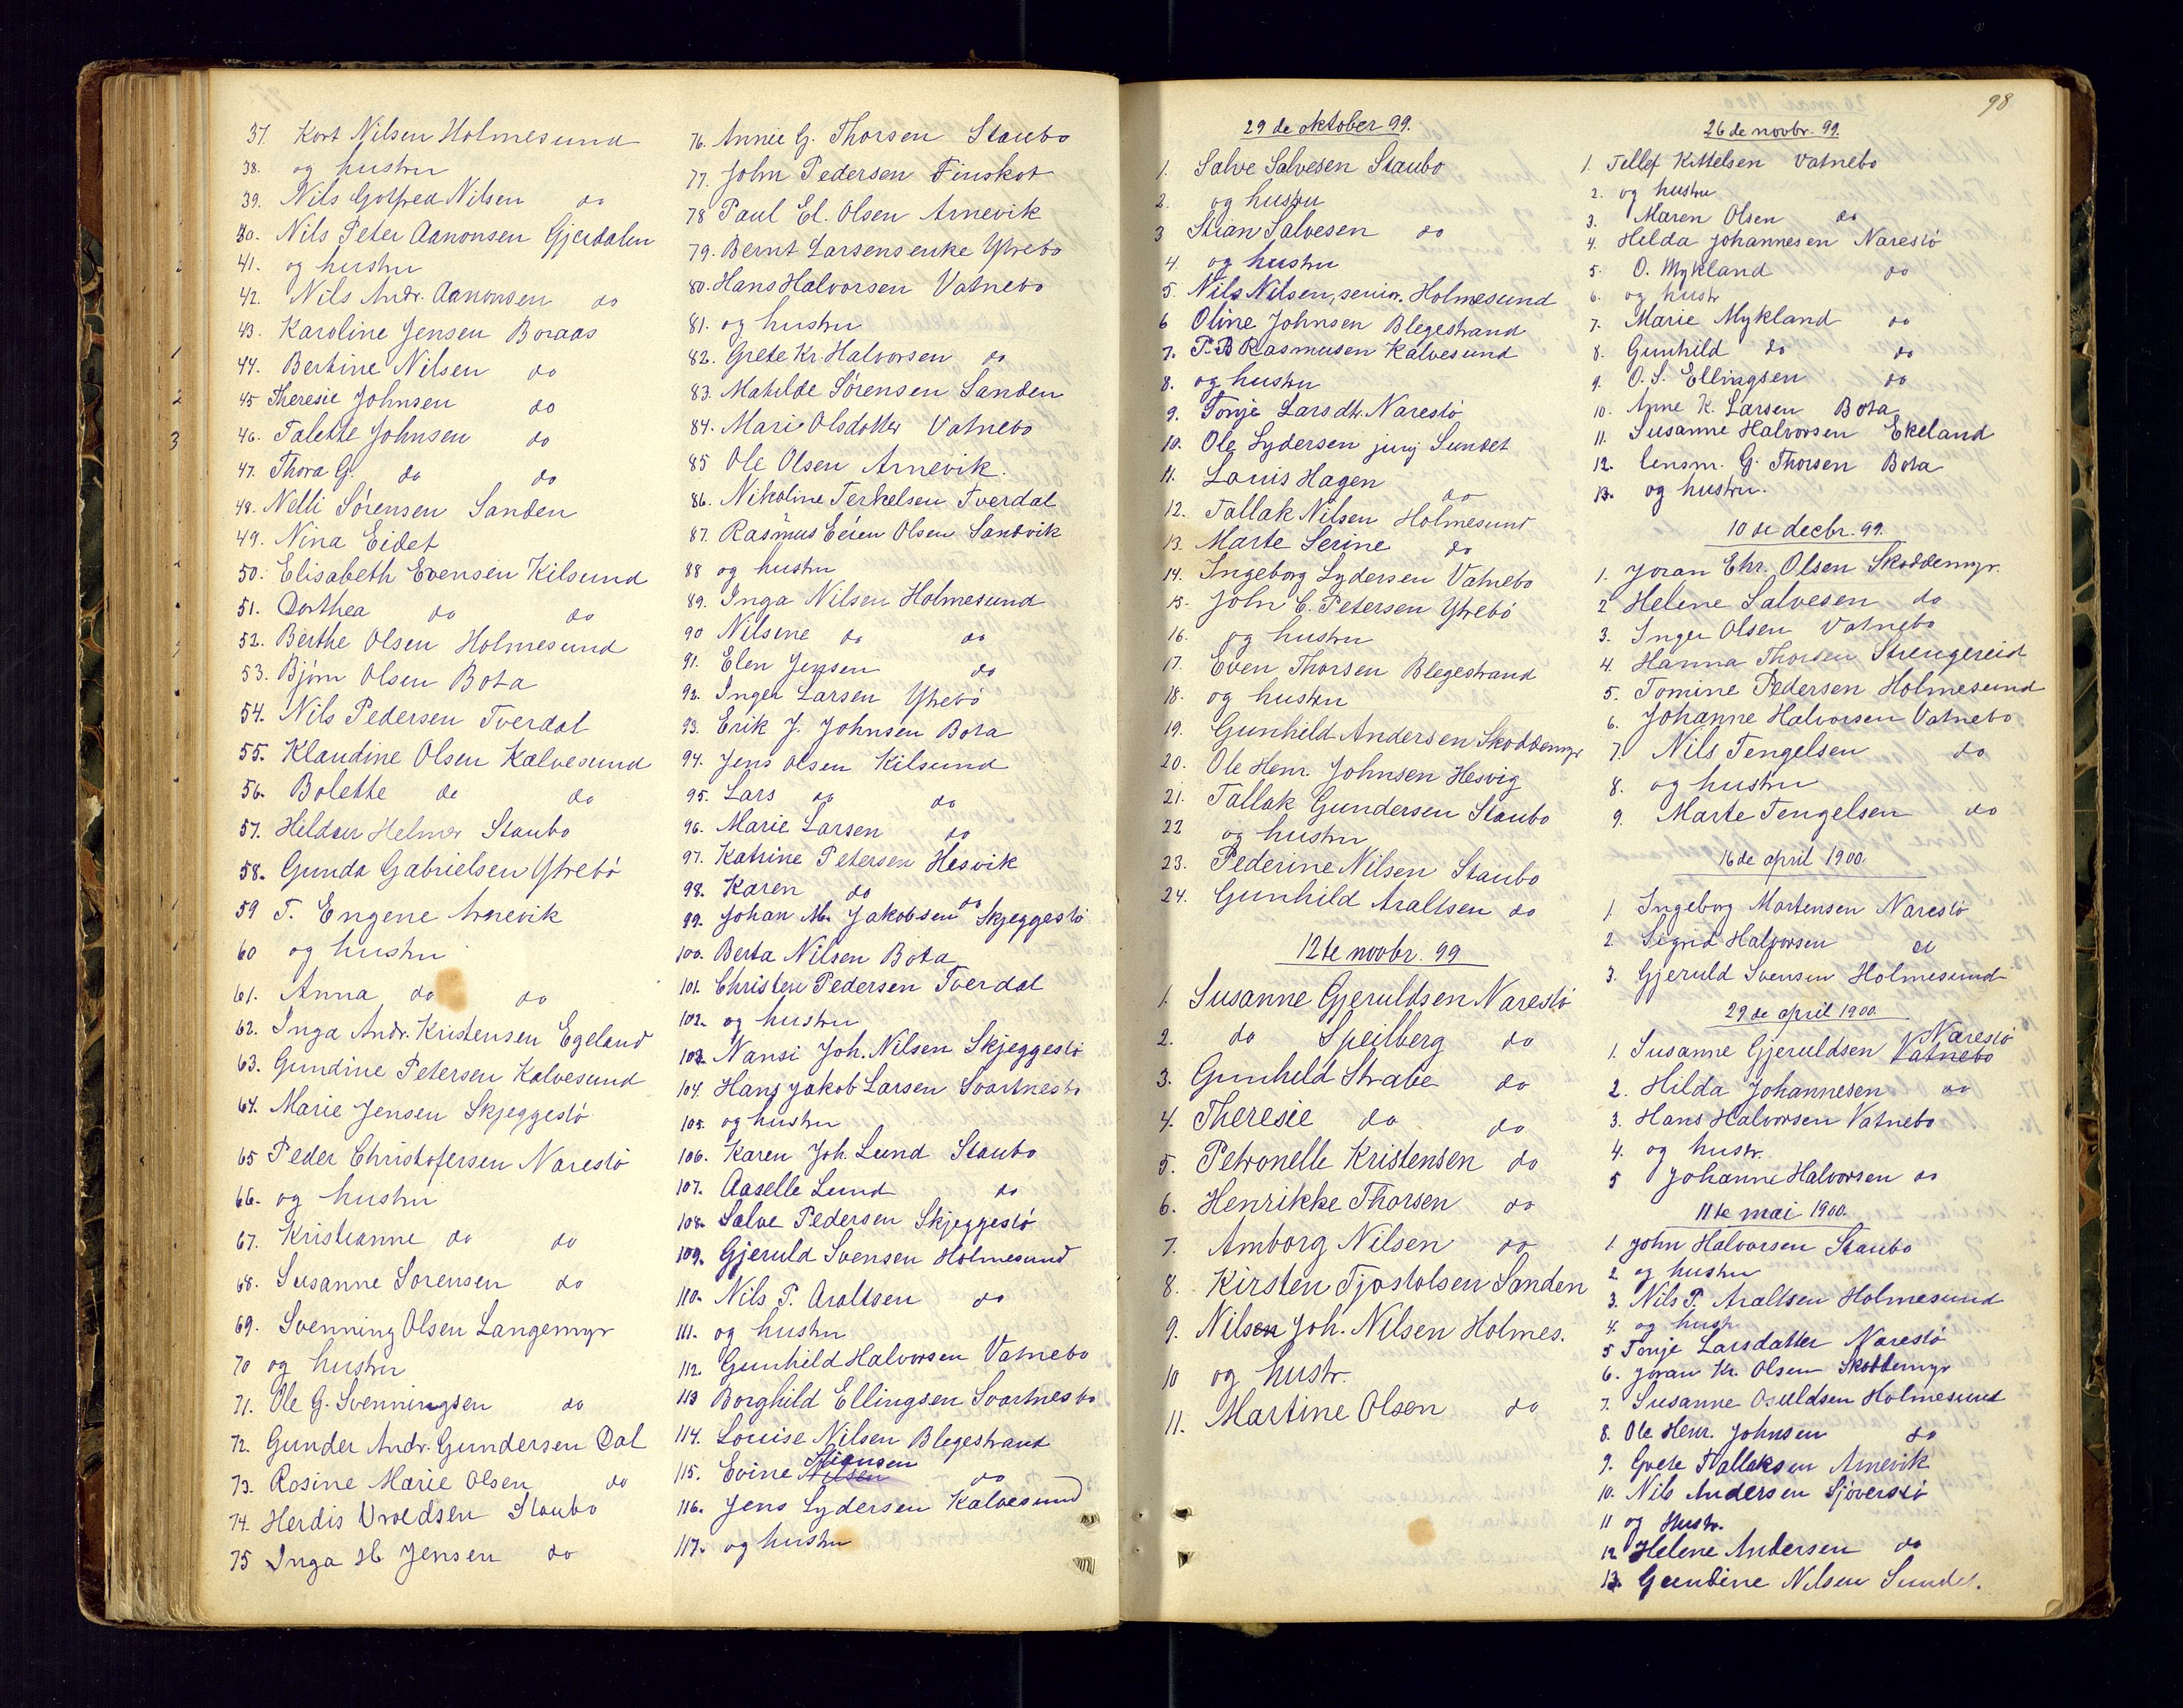 37. Kort Nilsen Holmesund
38. og hustru
39. Nils Gotfred Nilsen do
40. Nils Peter Aanonsen Gjerdalen
41. og hustru
42. Nils Andr. Aanonsen do
43. Karoline Jensen Boraas
44. Bertine Nilsen do
45 Theresie Johnsen do
46. Talette Johnsen do
47. Thora G. do do
48. Nelli Sørensen Sanden
49. Nina Eidet
50. Elisabeth Evensen Kilsund
51. Dorthea do do
52. Berthe Olsen Holmesund
53. Bjørn Olsen Bota
54. Nils Pedersen Tverdal
55. Klaudine Olsen Kalvesund
56. Bolette do do
57. Helmer Staubo
58. Gunda Gabrielsen Ytrebø
59 T. Engene Arnevik
60 og hustru
61. Anna do do
62. Inga Andr. Kristensen Egeland
63. Gundine Petersen Kalvesund
64. Marie Jensen Skjeggeslø
65 Peder Christofersen Nareslø
66. og hustru
67. Kristianne do do
68. Susanne Sørensen do
69. Svenning Olsen Langemyr
70 og hustru
71. Ole G. Svenningsen do
72. Gunder Andr. Gundersen Dal
73. Rosine Marie Olsen do
74. Herdis Uvoldsen Staubo
75 Inga H. Jensen do
76. Annie G. Thorsen Staubo
77. John Pedersen Finskot
78 Paul El. Olsen Arnevik
79. Bernt Larsens enke Ytrebø
80. Hans Halvorsen Vatnebo
81. og hustru
82. Grete Kr. Halvorsen do
83. Matilde Sørensen Sanden
84. Mari Olsdatter Vatnebo
85 Ole Olsen Arnevik.
86. Nikoline Terkelsen Tverdal
87. Rasmus Olsen Sandvik
88 og hustru
89. Inga Nilsen Holmesund
90 Nilsine do do
91. Elen Jensen do
92. Inger Larsen Ytrebø
93. Erik J. Johnsen Bota
94. Jens Olsen Kilsund
95. Lars do do
96. Marie Larsen do
97. Katrine Petersen Hesvik
98. Karen do do
99. Johan M. Jakobsen Skjeggeslø
100. Berta Nilsen Bota
101. Christen Pedersen Tverdal
102. og hustru
103. Nansi Joh. Nilsen Skjeggeslø
104. Hans Jakob Larsen Svartnesbo
105. og hustru
106. Karen Joh. Lund Staubo
107. Aaselle Lund do
108. Salve Pedersen Skjeggeslø
109. Gjeruld Svensen Holmesund
110. Nils P. Araltsen do
111. og hustru
112. Gunhild Halvorsen Vatnebo
113 Borghild Ellingsen Svartnesbo
114. Louise Nilsen Blegestrand
115. Evine Stiansen do
116. Jens Lydersen Kalvesund
117. og hustru
29 de oktober 99.
1. Salve Salvesen Staubo
2. og hustru
3 Stian Salvesen do
4. og hustru
5. Nils Nilsen, senior. Holmesund
6 Oline Johnsen Blegestrand
7. P. B Rasmusen Kalvesund
8. og hustru
9. Tonje Larsdtr. Nareslø
10. Ole Lydersen junj Sundet
11. Louis Hagen do
12. Tallak Nilsen Holmesund
13. Marte Serine do
14. Ingeborg Lydersen Vatnebo
15. John C. Petersen Ytrebø
16. og hustru
17. Even Thorsen Blegestrand
18. og hustru
19. Gunhild Andersen Skoddemyr
20. Ole Henr. Johnsen Hesvig
21. Tallak Gundersen Staubo
22 og hustru
23. Pederine Nilsen Staubo
24. Gunhild Araltsen do
12te novbr. 99
1. Susanne Gjeruldsen Nareslø
2. do Speilberg do
3. Gunhild Strabe do
4. Theresie do do
5. Petronelle Kristensen do
6. Henrikke Thorsen do
7. Amborg Nilsen do
8. Kirsten Tjostolsen Sanden
9. Nilsen Joh. Nilsen Holmes.
10 og hustr.
11. Martine Olsen do
98
26 de novbr. 99.
1. Tellef Kittelsen Vatnebo
2. og hustru
3. Maren Olsen do
4. Helda Johannesen Nareslø
5. O. Mykland do
6. og hustr
7. Marie Mykland do
8. Gunhild do do
9. O. S. Ellingsen do
10. Anne K. Larsen Bota
11. Susanne Halvorsen Ekeland
12. Lensm. G. Thorsen Bota
13. og hustru.
10 de decbr. 99.
1. Joran Chr. Olsen Skoddemyr.
2 Helene Salvesen do
3. Inger Olsen Vatnebo
4. Hanna Thorsen Strengereid
5. Tomine Pedersen Holmesund
6. Johanne Halvorsen Vatnebo
7. Nils Tengelsen do
8. og hustru
9. Marte Tengelsen do
16 de april 1900.
1. Ingeborg Mortensen Nareslø
2. Sigrid Halvorsen
3. Gjeruld Svensen Holmesund
29 de april 1900
1. Susanne Gjeruldsen Vatnebo Nareslø
2. Hilda Johannesen do
3. Hans Halvorsen Vatnebo
4. og hustr.
5 Johanne Halvorsen do
11te mai 1900.
1. John Halvorsen Staubo
2 og hustru
3. Nils P. Araltsen Holmesund
4. og hustr.
5 Tonje Larsdatter Nareslø
6. Joran Kr. Olsen Skoddemyr
7. Susanne Osuldsen Holmesund
8. Ole Henr. Johnsen do
9. Grete Tallaksen Arnevik
10. Nils Andersen Sjøverslø
11 og Hustr.
12 Helene Andersen do
13. Gundine Nilsen Sundet.